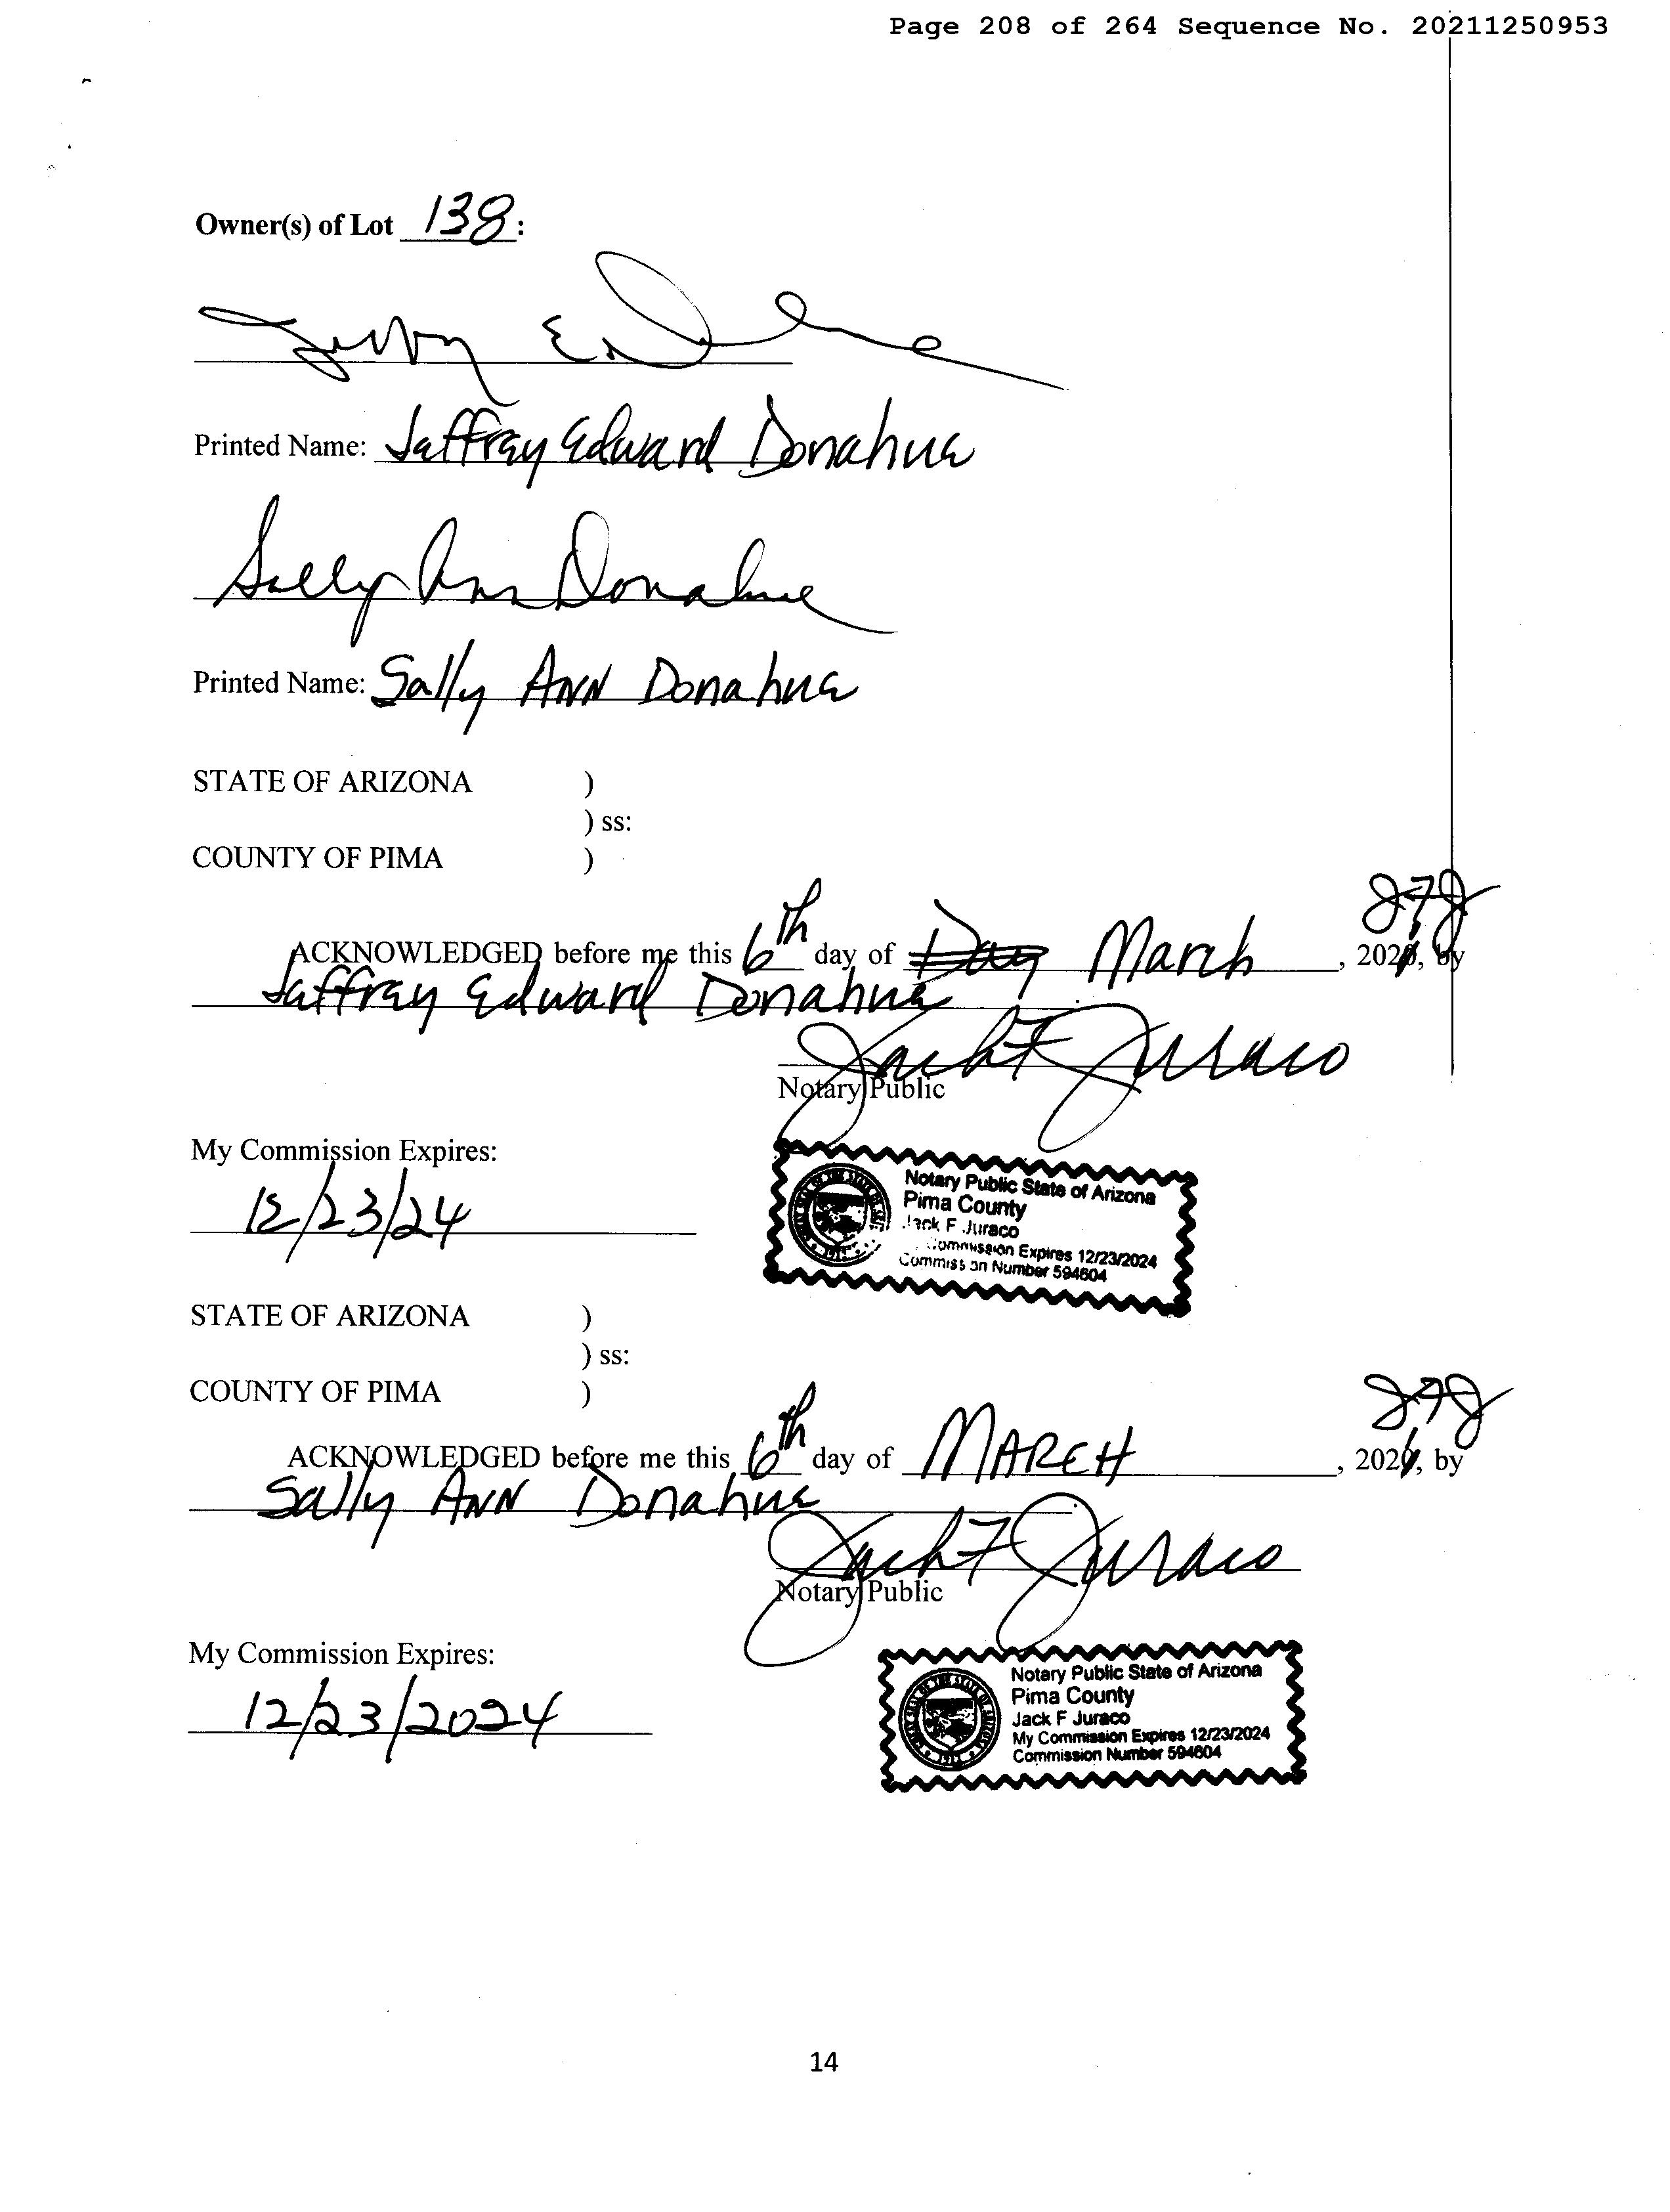 Page 208 of 264 Sequence No. 20211250953
Owner(s) of Lot 138:
Printed Name: Jeffrey Edward Donahue
Sally Ann Donahue
Printed Name: Sally ANN Donahue
STATE OF ARIZONA )
) ss:
COUNTY OF PIMA )
ACKNOWLEDGED before me this 6th day of Day March, 2021, by
Jeffrey Edward Donahue
Jack F Juraco
Notary Public
My Commission Expires:
12/23/24
Notary Public State of Arizona
Pima County
Jack F Juraco
Commission Expires 12/23/2024
Commission Number 594604
STATE OF ARIZONA )
) ss:
COUNTY OF PIMA )
JFJ
ACKNOWLEDGED before me this 6th day of MARCH, 2021, by
Sally ANN Donahue
Jack F Juraco
Notary Public
My Commission Expires:
12/23/2024
Notary Public State of Arizona
Pima County
Jack F Juraco
My Commission Expires 12/23/2024
Commission Number 594604
14